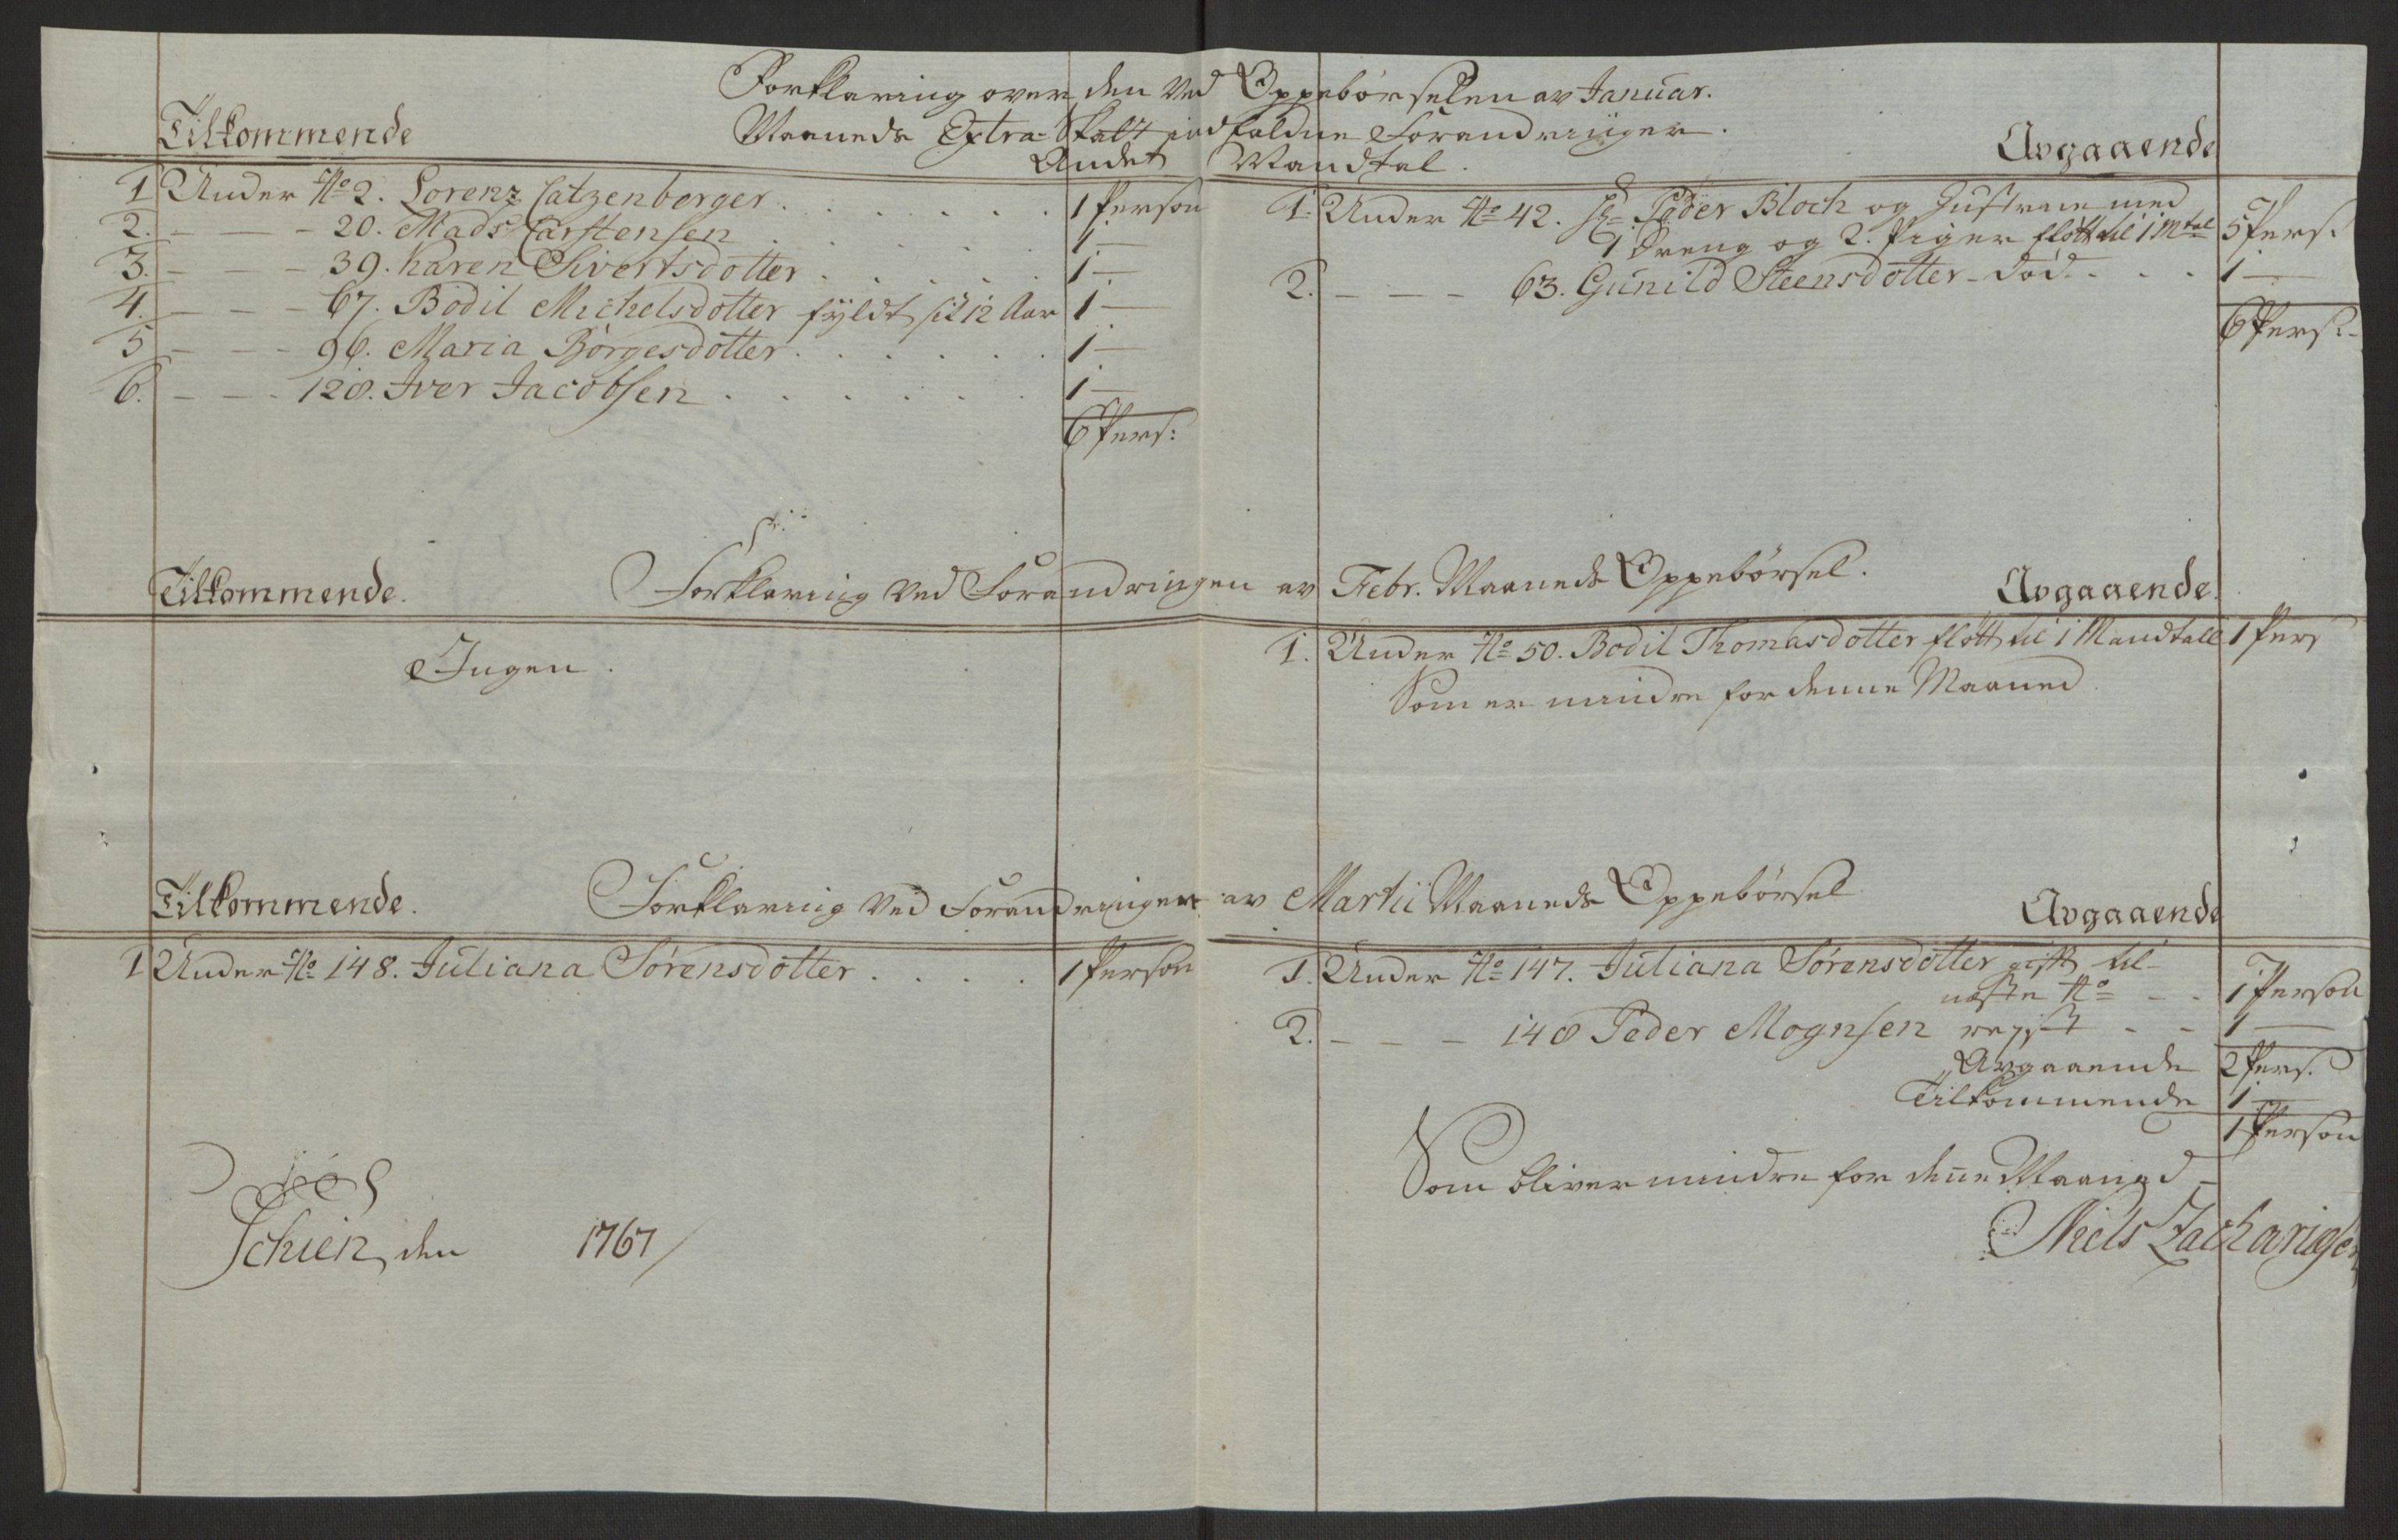 Forklaring over den ved Oppebörselen av Januar.
Maaneds Extra-Skatt indfaldne Forandringer.
Andet Mandtal.
Tilkommende
Avgaaende
1 Under No 2. Lorenz Catzenberger . . . . . . 1 Person
2. — — — 20. Mads Carstensen . . . . . 1 —
3. — — — 39. Karen Sivertsdotter . . . . . 1 —
4. — — — 67. Bodil Michelsdotter fyldt sit 12 Aar 1 —
5 — — — 96. Maria Börgesdotter . . . . . . 1 —
6. — — — 128. Iver Jacobsen . . . . . . 1 —
6 Pers:
1. Under No 42. Hr Peder Bloch og Hustrue med
1 Dreng og 2. Piger fløtt til 1 Mtal 5 Pers:
2. — — — 63. Gunild Steensdotter - död . . . 1 —
6 Pers:
Tilkommende. Forklaring ved Forandringen av Febr. Maaneds Oppebörsel. Avgaaende.
Ingen.
1. Under No 50. Bodil Thomasdotter fløtt til 1 Mandtall 1 Pers
Som er mindre for denne Maaned
Tilkommende. Forklaring ved Forandringen av Martii Maaneds Oppebörsel Avgaaende
1 Under No 148. Juliana Sörensdotter . . . . 1 Person
1. Under No 147. Juliana Sörensdotter gift til
næste No — — 1 Person
2. — — — 148 Peder Mognsen rejst — — 1 —
Avgaaende 2 Pers.
Tilkommende 1 —
1 Person
Som bliver mindre for denne Maaned
Schien den 1767
Niels Zachariæsen